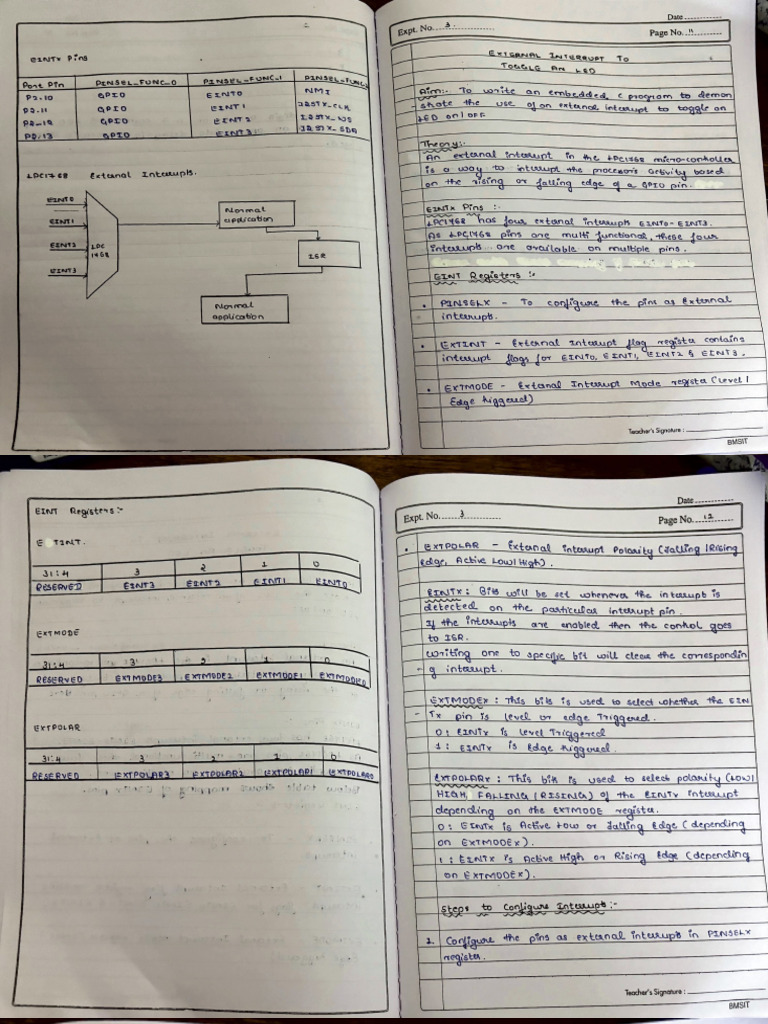 EINTx Pins
Port Pin PINSEL_FUNC_0 PINSEL_FUNC_1 PINSEL_FUNC_2
P2.10 GPIO EINT0 NMI
P2.11 GPIO EINT1 I2STX_CLK
P2.12 GPIO EINT2 I2STX_WS
P2.13 GPIO EINT3 I2STX_SDA
LPC1768 External Interrupts.
EINT0
EINT1
EINT2
EINT3
LPC
1768
Normal
application
ISR
Normal
application
Date
Expt. No. 3.
Page No. 11
EXTERNAL INTERRUPT TO
TOGGLE AN LED
Aim:- To write an embedded C program to demon
- strate the use of an external interrupt to toggle an
LED on/OFF
Theory:-
An external interrupt in the LPC1768 micro-controller
is a way to interrupt the processor's activity based
on the rising or falling edge of a GPIO pin.
EINTx Pins :-
LPC1768 has four external interrupts EINT0-EINT3.
As LPC1768 pins are multi functional, these four
interrupts are available on multiple pins.
EINT Registers :-
• PINSELX - To configure the pins as External
interrupts.
• EXTINT - External Interrupt flag register contains
interrupt flags for EINT0, EINT1, EINT2 & EINT3.
• EXTMODE - External Interrupt Mode register (Level/
Edge triggered)
Teacher's Signature :
BMSIT
EINT Registers:-
E TINT.
31:4 3 2 1 0
RESERVED EINT3 EINT2 EINT1 EINT0
EXTMODE
31:4 3 2 1 0
RESERVED EXTMODE3 EXTMODE2 EXTMODE1 EXTMODE0
EXTPOLAR
31:4 3 2 1 0
RESERVED EXTPOLAR3 EXTPOLAR2 EXTPOLAR1 EXTPOLAR0
Date
Expt. No. 3
Page No. 12
• EXTPOLAR - External interrupt Polarity (Falling/Rising
Edge, Active Low/High).
EINTx : Bits will be set whenever the interrupt is
detected on the particular interrupt pin.
If the interrupts are enabled then the control goes
to ISR.
Writing one to specific bit will clear the correspondin
- g interrupt.
EXTMODEx : This bits is used to select whether the EIN
- Tx pin is level or edge Triggered.
0 : EINTx is Level Triggered
1 : EINTx is Edge triggered.
EXTPOLARx : This bits is used to select polarity (LOW/
HIGH, FALLING/RISING) of the EINTx interrupt
depending on the EXTMODE register.
0 : EINTx is Active Low or falling Edge (depending
on EXTMODEx).
1 : EINTx is Active High or Rising Edge (depending
on EXTMODEx).
Steps to Configure Interrupt:-
1. Configure the pins as external interrupts in PINSELx
register.
Teacher's Signature :
BMSIT